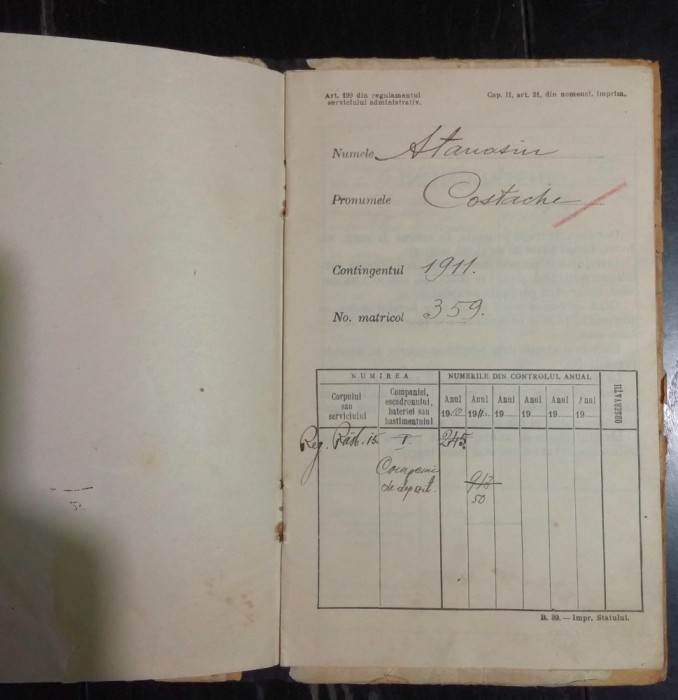 Art. 199 din regulamentul
serviciului administrativ.
Cap. II, art. 31, din nomencl. imprim.
Numele Atanasiu
Pronumele Costache
Contingentul 1911.
No. matricol 359.
NUMIREA
NUMERILE DIN CONTROLUL ANUAL
Corpului
sau
serviciului
Companiei,
escadronului,
bateriei sau
bastimentului
Anul Anul Anul Anul Anul Anul
19 19 11 19 19 19 19
OBSERVAȚII
Reg. Răsb. 15 I 245
Companie
de depozit.
50
B. 39. — Impr. Statului.